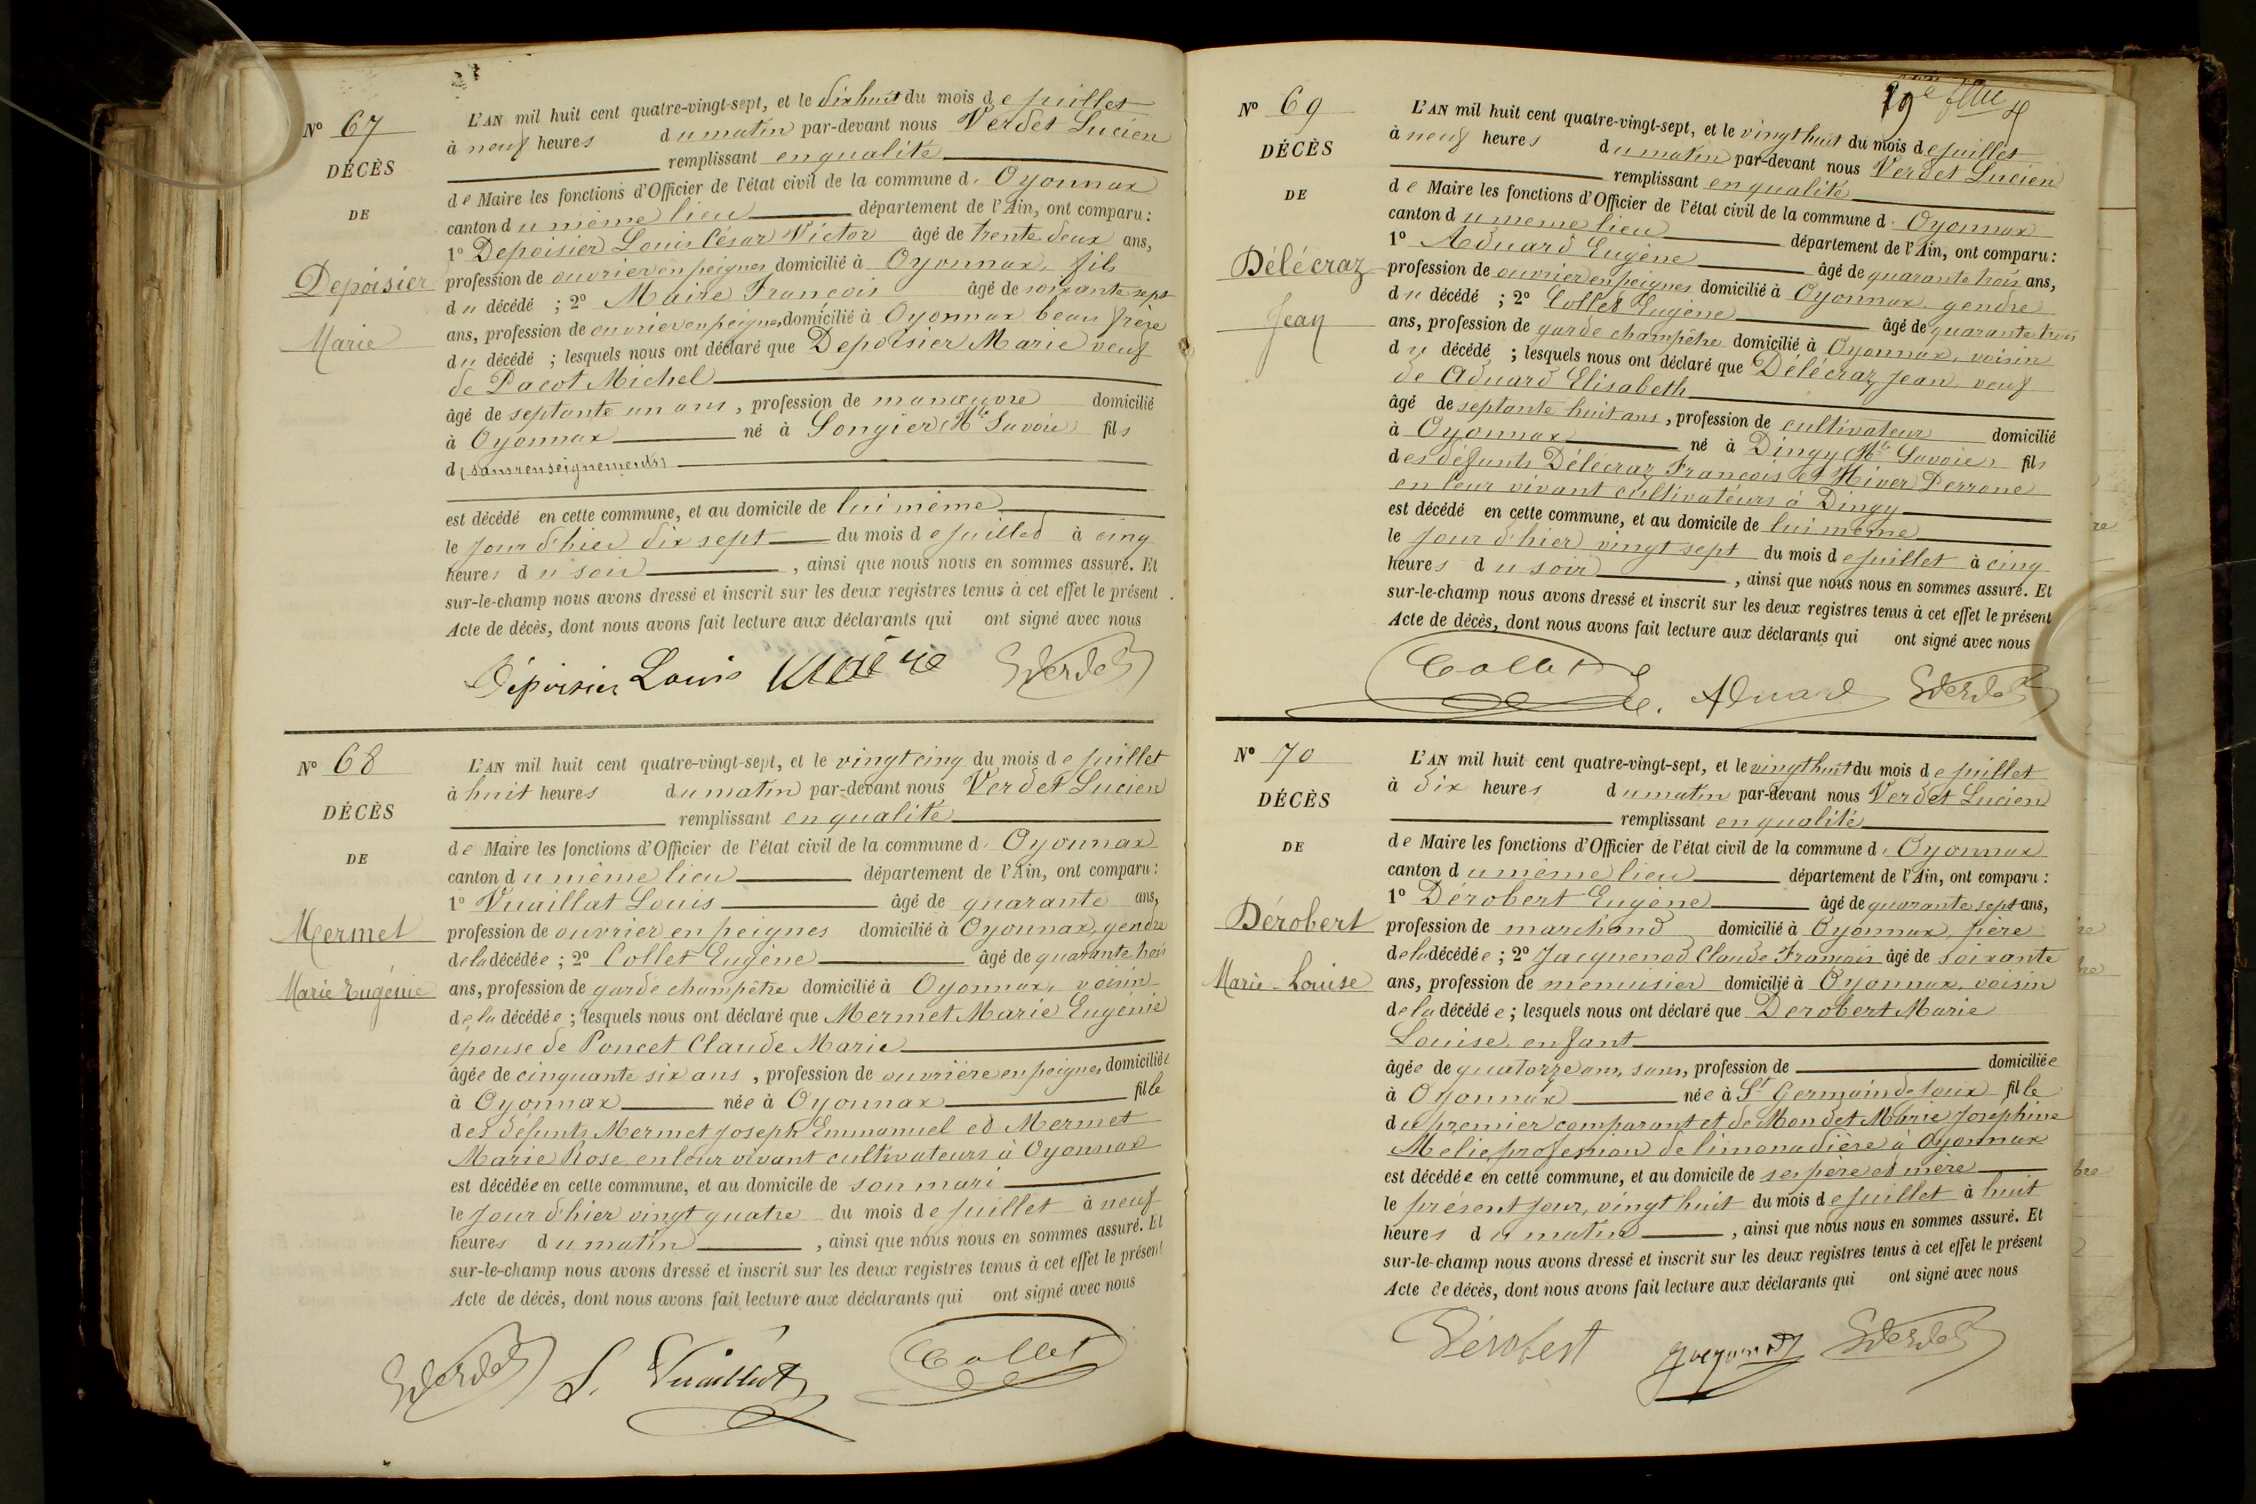 N° 67
DÉCÈS
DE
Depoisier
Marie
L'AN mil huit cent quatre-vingt-sept, et le dix huit du mois de juillet
à neuf heures du matin par-devant nous Verdet Lucien
remplissant en qualité
de Maire les fonctions d'Officier de l'état civil de la commune d. Oyonnax
canton du même lieu département de l'Ain, ont comparu :
1° Depoisier Louis César Victor âgé de trente deux ans,
profession de ouvrier en peignes domicilié à Oyonnax, fils
du décédé ; 2° Maire François âgé de soixante sept
ans, profession de ouvrier en peignes domicilié à Oyonnax beau frère
du décédé ; lesquels nous ont déclaré que Depoisier Marie veuf
de Pacot Michel
âgé de septante un ans, profession de manœuvre domicilié
à Oyonnax né à Songier (Hte Savoie) fils
d (sans renseignements)
est décédé en cette commune, et au domicile de lui même
le jour d'hier dix sept du mois de juillet à cinq
heures du soir, ainsi que nous nous en sommes assuré. Et
sur-le-champ nous avons dressé et inscrit sur les deux registres tenus à cet effet le présent
Acte de décès, dont nous avons fait lecture aux déclarants qui ont signé avec nous
Dépoisier Louis Maire Verdet
N° 68
DÉCÈS
DE
Mermet
Marie Eugénie
L'AN mil huit cent quatre-vingt-sept, et le vingt cinq du mois de juillet
à huit heures du matin par-devant nous Verdet Lucien
remplissant en qualité
de Maire les fonctions d'Officier de l'état civil de la commune d. Oyonnax
canton du même lieu département de l'Ain, ont comparu :
1° Vuaillat Louis âgé de quarante ans,
profession de ouvrier en peignes domicilié à Oyonnax, gendre
de la décédée ; 2° Collet Eugène âgé de quarante trois
ans, profession de garde champêtre domicilié à Oyonnax, voisin
de la décédée ; lesquels nous ont déclaré que Mermet Marie Eugénie
épouse de Poncet Claude Marie
âgée de cinquante six ans, profession de ouvrière en peignes domiciliée
à Oyonnax née à Oyonnax fille
des défunts Mermet Joseph Emmanuel et Mermet
Marie Rose en leur vivant cultivateurs à Oyonnax
est décédée en cette commune, et au domicile de son mari
le jour d'hier vingt quatre du mois de juillet à neuf
heures du matin, ainsi que nous nous en sommes assuré. Et
sur-le-champ nous avons dressé et inscrit sur les deux registres tenus à cet effet le présent
Acte de décès, dont nous avons fait lecture aux déclarants qui ont signé avec nous
Verdet L. Vuaillat Collet
19e
N° 69
DÉCÈS
DE
Délécraz
Jean
L'AN mil huit cent quatre-vingt-sept, et le vingt huit du mois de juillet
à neuf heures du matin par-devant nous Verdet Lucien
remplissant en qualité
de Maire les fonctions d'Officier de l'état civil de la commune d. Oyonnax
canton du même lieu département de l'Ain, ont comparu :
1° Aduard Eugène âgé de quarante trois ans,
profession de ouvrier en peignes domicilié à Oyonnax gendre
du décédé ; 2° Collet Eugène âgé de quarante trois
ans, profession de garde champêtre domicilié à Oyonnax, voisin
du décédé ; lesquels nous ont déclaré que Délécraz Jean veuf
de Aduard Elisabeth
âgé de septante huit ans, profession de cultivateur domicilié
à Oyonnax né à Dingy (Hte Savoie) fils
des défunts Délécraz François et Hiver Perrone
en leur vivant cultivateurs à Dingy
est décédé en cette commune, et au domicile de lui même
le jour d'hier vingt sept du mois de juillet à cinq
heures du soir, ainsi que nous nous en sommes assuré. Et
sur-le-champ nous avons dressé et inscrit sur les deux registres tenus à cet effet le présent
Acte de décès, dont nous avons fait lecture aux déclarants qui ont signé avec nous
Collet E. Aduard Verdet
N° 70
DÉCÈS
DE
Dérobert
Marie-Louise
L'AN mil huit cent quatre-vingt-sept, et le vingt huit du mois de juillet
à dix heures du matin par-devant nous Verdet Lucien
remplissant en qualité
de Maire les fonctions d'Officier de l'état civil de la commune d. Oyonnax
canton du même lieu département de l'Ain, ont comparu :
1° Dérobert Eugène âgé de quarante sept ans,
profession de marchand domicilié à Oyonnax, père
de la décédée ; 2° Jacquenod Claude François âgé de soixante
ans, profession de menuisier domicilié à Oyonnax, voisin
de la décédée ; lesquels nous ont déclaré que Derobert Marie
Louise, enfant
âgée de quatorze ans, sans, profession de domiciliée
à Oyonnax née à St Germain de Joux fille
du premier comparant et de Mondet Marie Josephine
Mélie, profession de limonadière à Oyonnax
est décédée en cette commune, et au domicile de ses père et mère
le présent jour, vingt huit du mois de juillet à huit
heures du matin, ainsi que nous nous en sommes assuré. Et
sur-le-champ nous avons dressé et inscrit sur les deux registres tenus à cet effet le présent
Acte de décès, dont nous avons fait lecture aux déclarants qui ont signé avec nous
Dérobert Verdet